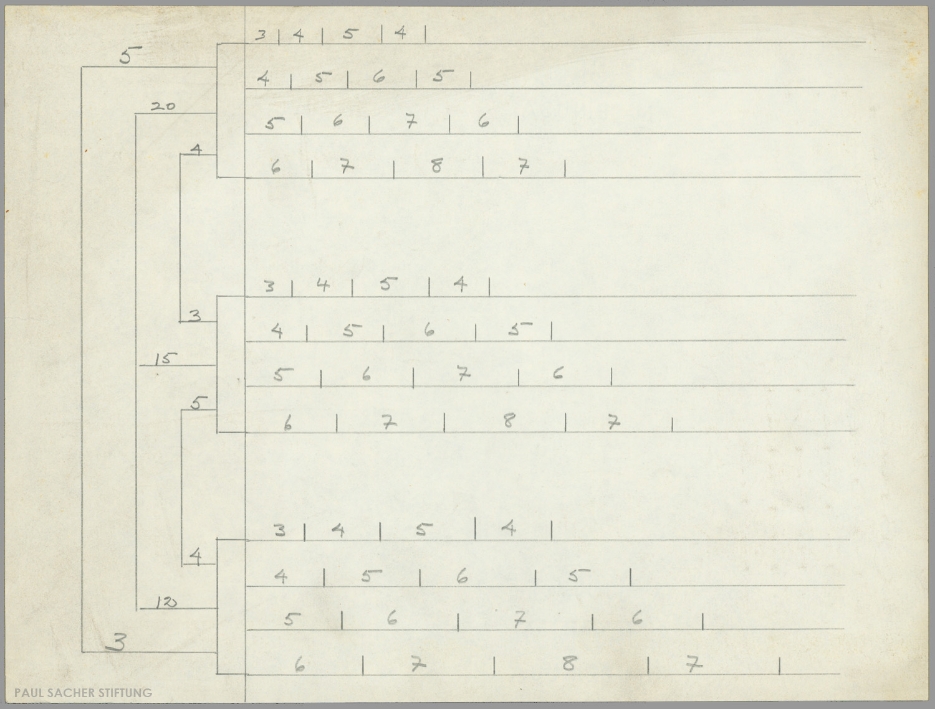 3 | 4 | 5 | 4 |
5
4 | 5 | 6 | 5 |
20
5 | 6 | 7 | 6 |
4
6 | 7 | 8 | 7 |
3 | 4 | 5 | 4 |
3
4 | 5 | 6 | 5 |
15
5 | 6 | 7 | 6 |
5
6 | 7 | 8 | 7 |
3 | 4 | 5 | 4 |
4
4 | 5 | 6 | 5 |
12
5 | 6 | 7 | 6 |
3
6 | 7 | 8 | 7 |
PAUL SACHER STIFTUNG